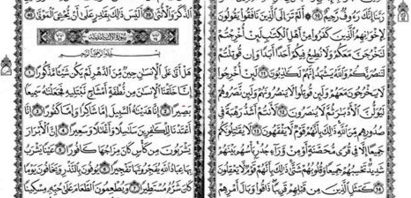 رَبَّنَا إِنَّكَ رَءُوفٌ رَّحِيمٌ أَلَمْ تَرَ إِلَى الَّذِينَ نَافَقُوا يَقُولُونَ
لِإِخْوَانِهِمُ الَّذِينَ كَفَرُوا مِنْ أَهْلِ الْكِتَابِ لَئِنْ أُخْرِجْتُمْ
لَنَخْرُجَنَّ مَعَكُمْ وَلَا نُطِيعُ فِيكُمْ أَحَدًا أَبَدًا وَإِن قُوتِلْتُمْ
لَنَنصُرَنَّكُمْ وَاللَّهُ يَشْهَدُ إِنَّهُمْ لَكَاذِبُونَ لَئِنْ أُخْرِجُوا
لَا يَخْرُجُونَ مَعَهُمْ وَلَئِن قُوتِلُوا لَا يَنصُرُونَهُمْ وَلَئِن نَّصَرُوهُمْ
لَيُوَلُّنَّ الْأَدْبَارَ ثُمَّ لَا يُنصَرُونَ لَأَنتُمْ أَشَدُّ رَهْبَةً فِي
صُدُورِهِم مِّنَ اللَّهِ ذَٰلِكَ بِأَنَّهُمْ قَوْمٌ لَّا يَفْقَهُونَ لَا يُقَاتِلُونَكُمْ
جَمِيعًا إِلَّا فِي قُرًى مُّحَصَّنَةٍ أَوْ مِن وَرَاءِ جُدُرٍ بَأْسُهُم بَيْنَهُمْ
شَدِيدٌ تَحْسَبُهُمْ جَمِيعًا وَقُلُوبُهُمْ شَتَّىٰ ذَٰلِكَ بِأَنَّهُمْ قَوْمٌ لَّا يَعْقِلُونَ
كَمَثَلِ الَّذِينَ مِن قَبْلِهِمْ قَرِيبًا ذَاقُوا وَبَالَ أَمْرِهِمْ
الذَّكَرَ وَالْأُنثَىٰ أَلَيْسَ ذَٰلِكَ بِقَادِرٍ عَلَىٰ أَن يُحْيِيَ الْمَوْتَىٰ
سورة الإنسان
بِسْمِ اللَّهِ الرَّحْمَٰنِ الرَّحِيمِ
هَلْ أَتَىٰ عَلَى الْإِنسَانِ حِينٌ مِّنَ الدَّهْرِ لَمْ يَكُن شَيْئًا مَّذْكُورًا
إِنَّا خَلَقْنَا الْإِنسَانَ مِن نُّطْفَةٍ أَمْشَاجٍ نَّبْتَلِيهِ فَجَعَلْنَاهُ سَمِيعًا
بَصِيرًا إِنَّا هَدَيْنَاهُ السَّبِيلَ إِمَّا شَاكِرًا وَإِمَّا كَفُورًا إِنَّا
أَعْتَدْنَا لِلْكَافِرِينَ سَلَاسِلَا وَأَغْلَالًا وَسَعِيرًا إِنَّ الْأَبْرَارَ
يَشْرَبُونَ مِن كَأْسٍ كَانَ مِزَاجُهَا كَافُورًا عَيْنًا يَشْرَبُ
بِهَا عِبَادُ اللَّهِ يُفَجِّرُونَهَا تَفْجِيرًا يُوفُونَ بِالنَّذْرِ وَيَخَافُونَ يَوْمًا
كَانَ شَرُّهُ مُسْتَطِيرًا وَيُطْعِمُونَ الطَّعَامَ عَلَىٰ حُبِّهِ مِسْكِينًا